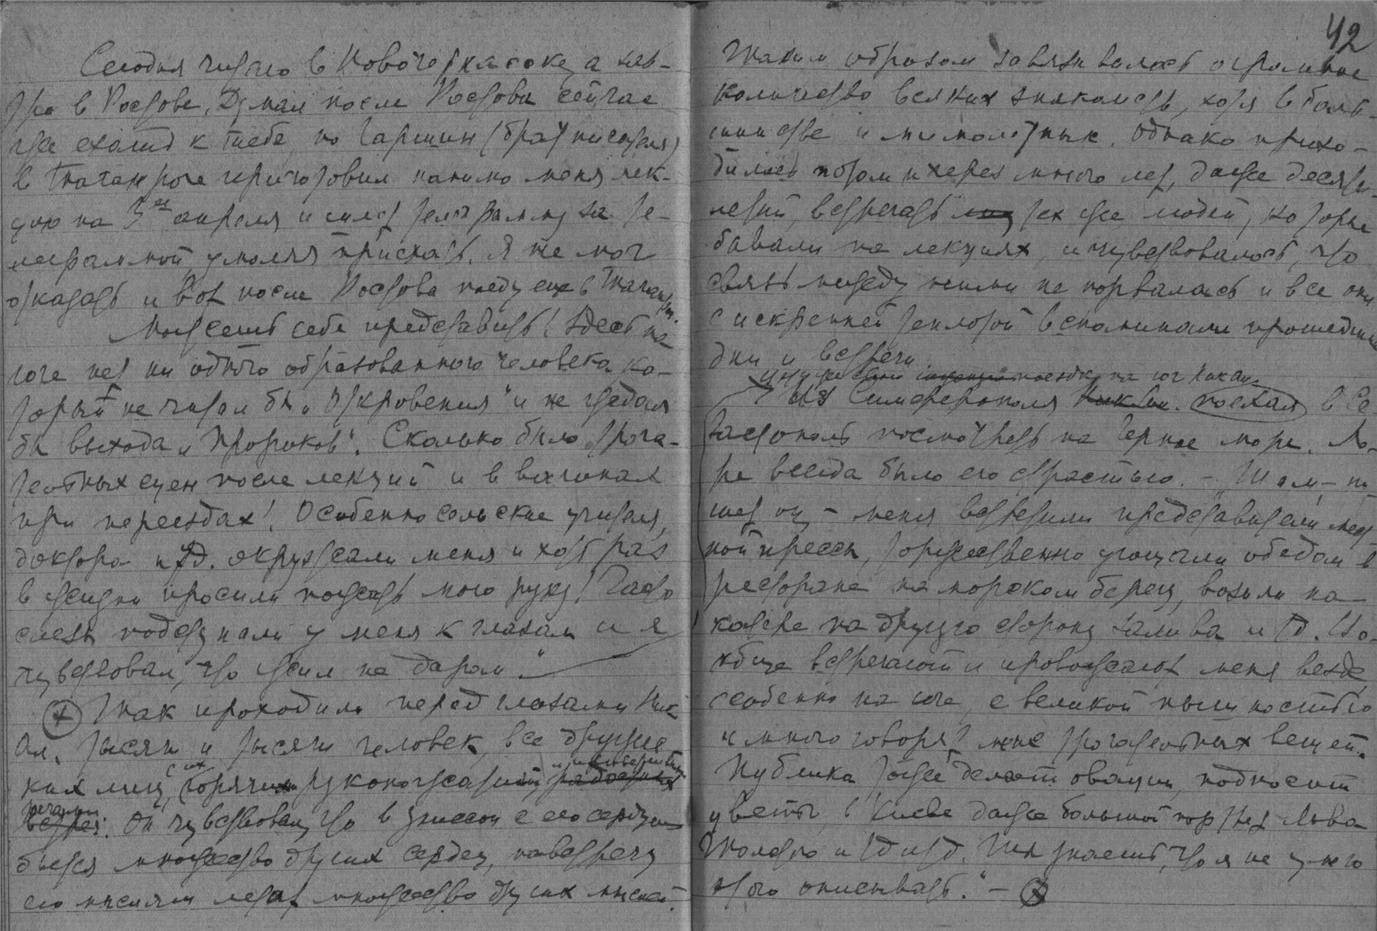 42
Сегодня читаю в Новочеркасске, а зав-
тра в Ростове. Думал после Ростова сейчас
же ехать к тебе, но Гаршин (брат писателя)
в Таганроге приготовил помимо меня лек-
цию на 3 апреля и шлет телеграмму за те-
леграммой умоляя приехать. Я не мог
отказать и вот после Ростова поеду еще в Таганрог.
Можешь себе представить! Здесь на
юге нет ни одного образованного человека ко-
торый не читал бы „Откровения" и не ждал
бы выхода „Пророков". Сколько было трога-
тельных сцен после лекций и в вагонах
при переездах! Особенно сельские учителя,
доктора и т.д. окружали меня и хоть раз
в жизни просили пожать мою руку! Часто
слезы подступали у меня к глазам и я
чувствовал, что жил не даром."
Так проходили перед глазами Ник.
Ал. тысячи и тысячи человек, все другие
их лиц, с их горячими рукопожатиями
речами. Он чувствовал, что в унисон с его сердцем
бьется множество других сердец, навстречу
его мыслям летят множество других мыслей.
Таким образом завязывалось огромное
количество всяких знакомств, хотя в боль-
шинстве и мимолетных. Однако прихо-
дилось потом и через много лет, даже десяти-
летий, встречать тех же людей, которые
бывали на лекциях, и чувствовалось, что
связь между ними не порвалась и все они
с искренней теплотой вспоминали прошедшие
дни и встречи.
поездки на юг Никол.
Из Симферополя поехал в Се-
вастополь посмотреть на Черное море. Мо-
ре всегда было его страстью. – Там – пи-
шет он – меня встретили представители мест-
ной прессы, торжественно угощали обедом в
ресторане на морском берегу, возили на
катере на другую сторону залива и т.д. Во-
обще встречают и провожают меня везде,
особенно на юге, с великой пышностью
и много говорят мне трогательных вещей.
Публика тоже делает овации, подносит
цветы, в Киеве даже большой портрет Льва
Толстого и т.д. и т.д. Ты знаешь, что я не умею
этого описывать." –